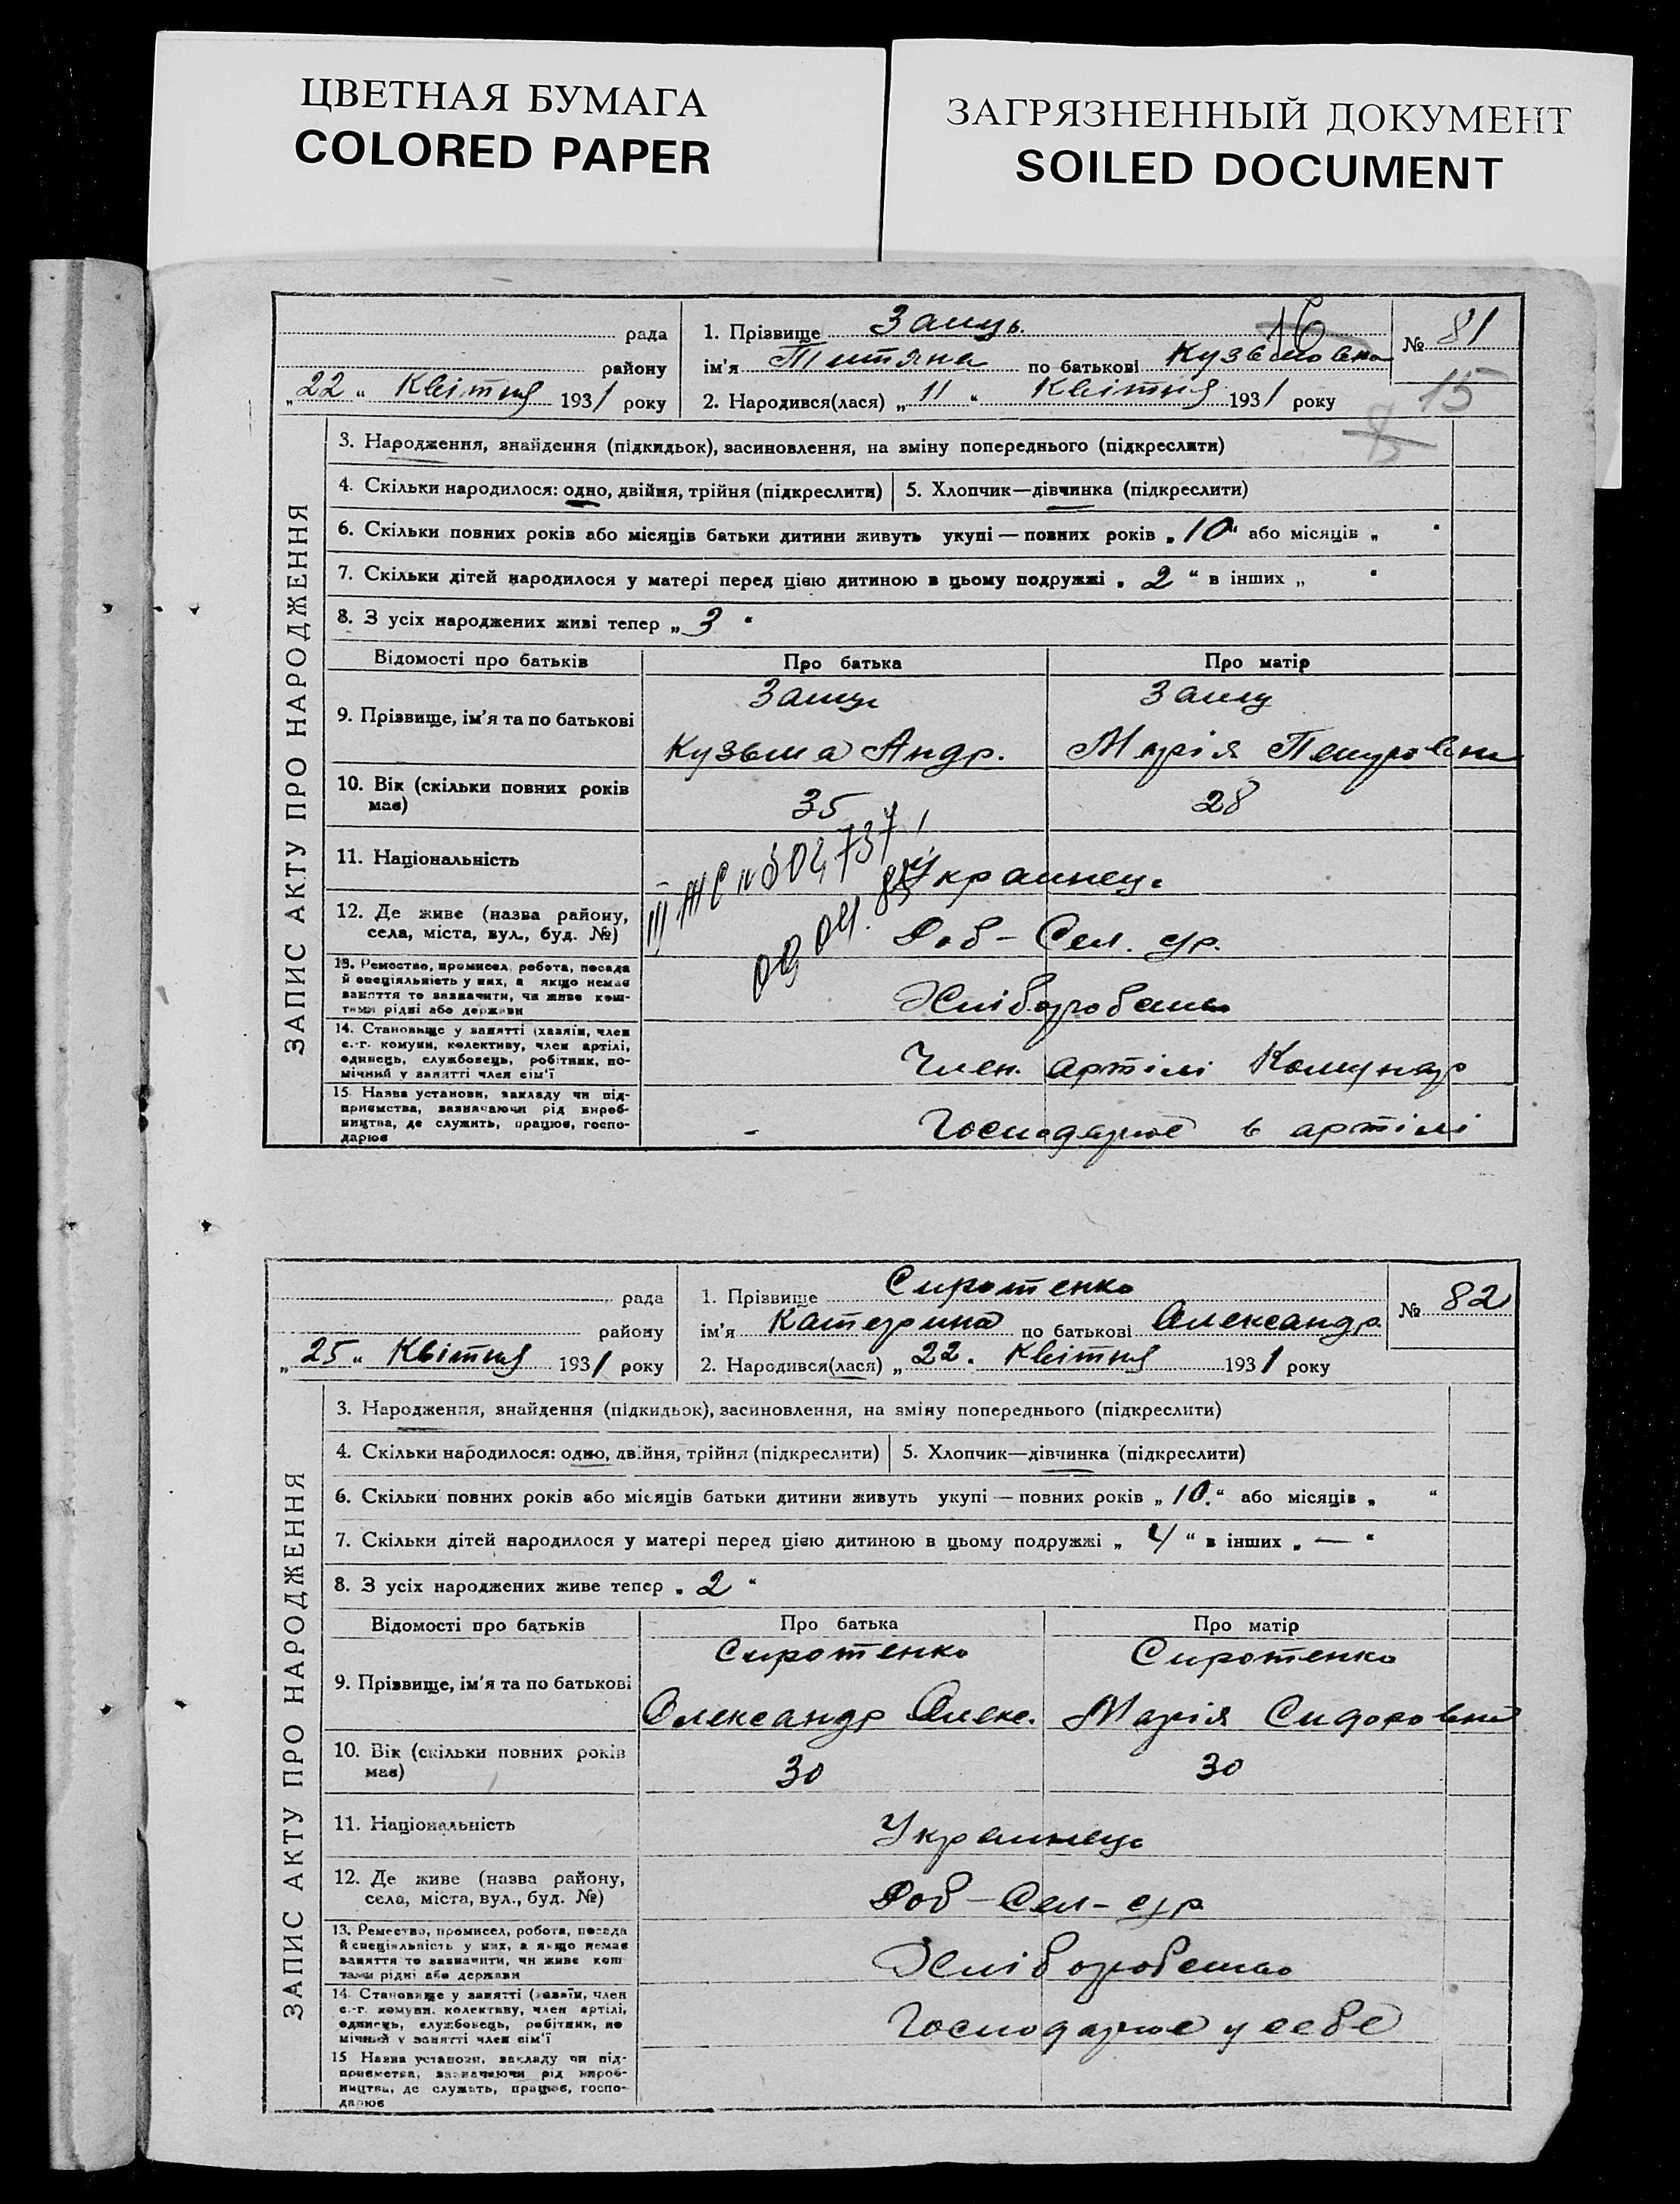 ЦВЕТНАЯ БУМАГА
COLORED PAPER
ЗАГРЯЗНЕННЫЙ ДОКУМЕНТ
SOILED DOCUMENT
рада
району
„22“ Квітня 1931 року
1. Прізвище Заиць
16
ім'я Титяна по батькові Кузьмовна
2. Народився(лася) „11“ Квітня 1931 року
№ 81
15
ЗАПИС АКТУ ПРО НАРОДЖЕННЯ
3. Народження, знайдення (підкидьок), засиновлення, на зміну попереднього (підкреслити)
4. Скільки народилося: одно, двійня, трійня (підкреслити) 5. Хлопчик—дівчинка (підкреслити)
6. Скільки повних років або місяців батьки дитини живуть укупі — повних років „10“ або місяців „ “
7. Скільки дітей народилося у матері перед цією дитиною в цьому подружжі „2“ в інших „ “
8. З усіх народжених живі тепер „3“
Відомості про батьків Про батька Про матір
9. Прізвище, ім'я та по батькові
Заиць Заиц
Кузьма Андр. Марія Петровна
10. Вік (скільки повних років має) 35 28
11. Національність Украинець
12. Де живе (назва району, села, міста, вул., буд. №) Доб- Сел. ср.
13. Ремество, промисел, робота, посада й специяльність у них, а якщо немає заняття то зазначити, чи живе коштами рідні або держави Хліборобство
14. Становище у занятті (хазяїн, член с.-г. комуни, колективу, член артілі, одинець, службовець, робітник, помічний у занятті член сім'ї Член. артілі Комунар
15. Назва установи, закладу чи підприємства, зазначаючи рід виробництва, де служить, працює, господарює - Господарює в артілі
рада
району
„25“ Квітня 1931 року
1. Прізвище Сиротенко
ім'я Катерина по батькові Олександр.
2. Народився(лася) „22. Квітня 1931 року
№ 82
ЗАПИС АКТУ ПРО НАРОДЖЕННЯ
3. Народження, знайдення (підкидьок), засиновлення, на зміну попереднього (підкреслити)
4. Скільки народилося: одно, двійня, трійня (підкреслити) 5. Хлопчик—дівчинка (підкреслити)
6. Скільки повних років або місяців батьки дитини живуть укупі — повних років „10.“ або місяців „ “
7. Скільки дітей народилося у матері перед цією дитиною в цьому подружжі „4“ в інших „—“
8. З усіх народжених живе тепер „2“
Відомості про батьків Про батька Про матір
9. Прізвище, ім'я та по батькові
Сиротенко Сиротенко
Олександр Олекс. Марія Сидоровна
10. Вік (скільки повних років має) 30 30
11. Національність Украинець
12. Де живе (назва району, села, міста, вул., буд. №) Доб-Сел-ср
13. Ремество, промисел, робота, посада й специяльність у них, а якщо немає заняття то зазначити, чи живе коштами рідні або держави Хліборобство
14. Становище у занятті (хазяїн, член с.-г. комуни, колективу, член артілі, одинець, службовець, робітник, помічний у занятті член сім'ї Господарює у себе
15 Назва установи, закладу чи підприємства, зазначаючи рід виробництва, де служить, працює, господарює